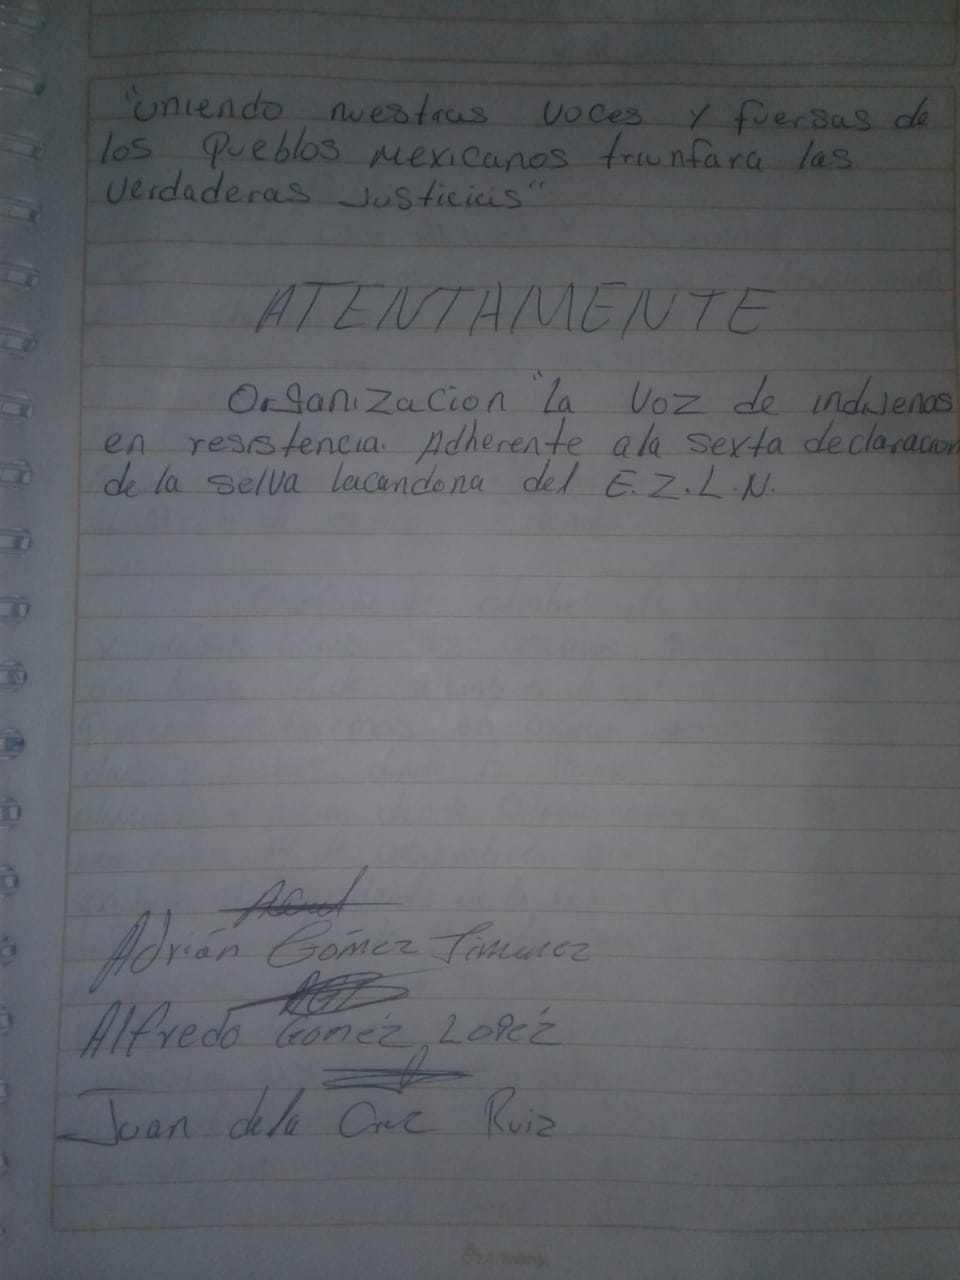 "Uniendo nuestras voces y fuersas de
los Pueblos Mexicanos triunfara las
verdaderas Justicias"
ATENTAMENTE
Organizacion "la Voz de indijenas
en resistencia. Adherente a la sexta declaracion
de la selva lacandona del E.Z.L.N.
Adrián Gómez Jimenez
AGL
Alfredo Goméz Lopéz
Juan de la Cruz Ruiz